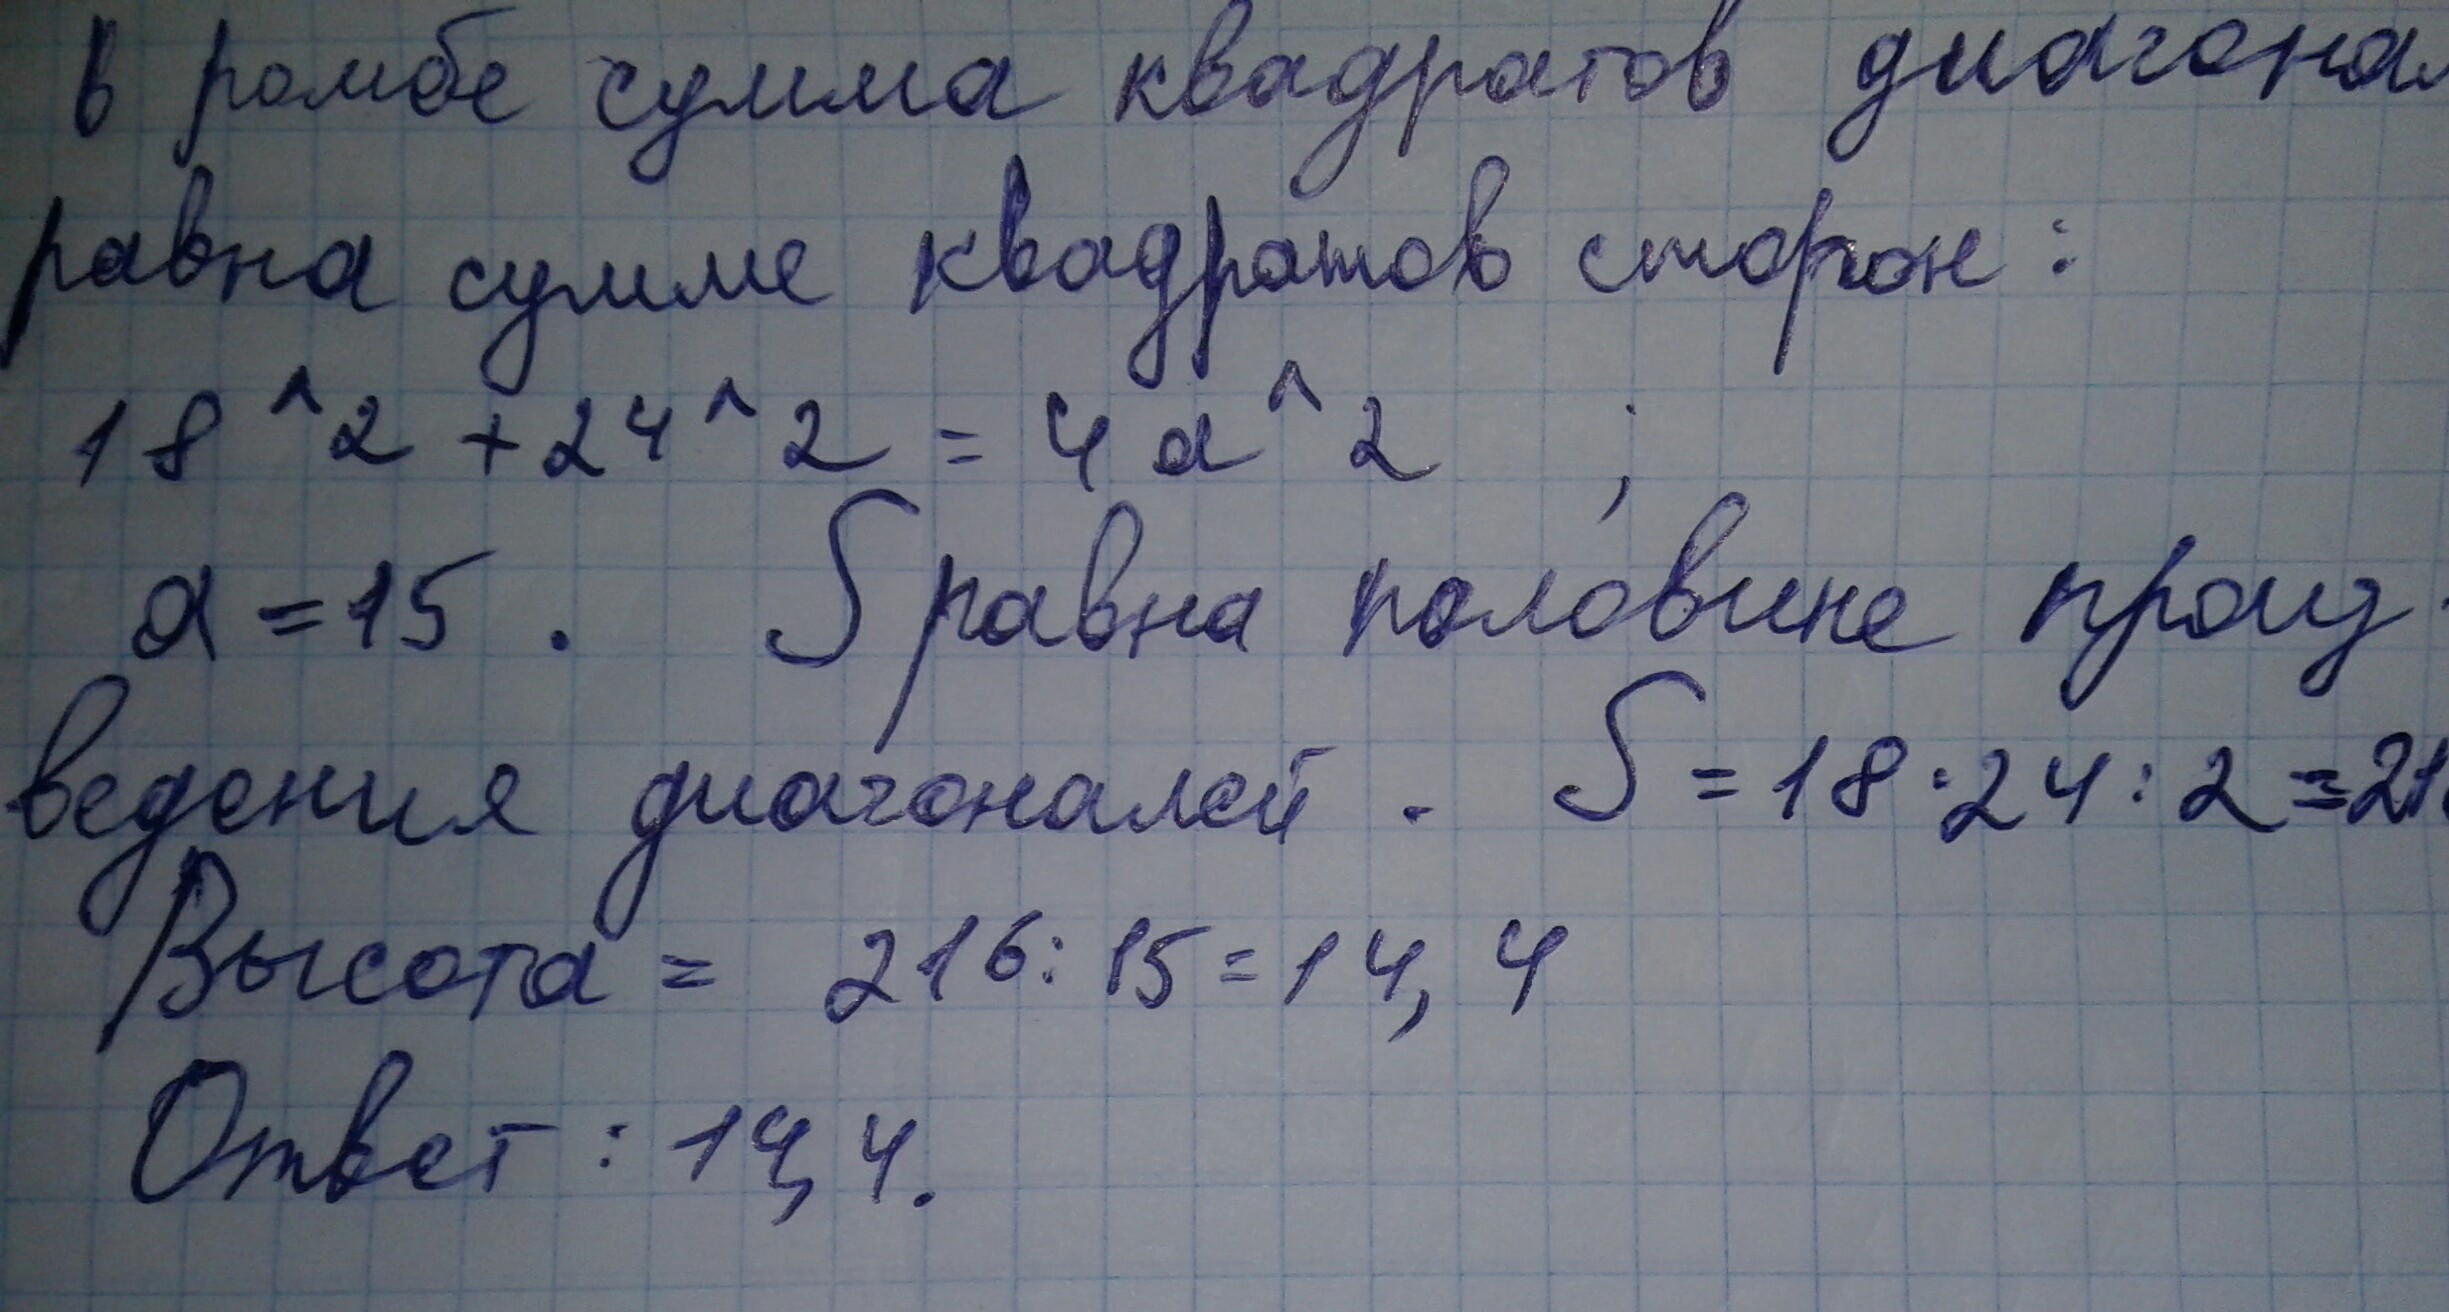 в ромбе сумма квадратов диагонал
равна сумме квадратов сторон:
18^2+24^2=4a^2 ;
a=15. S равна половине произ-
ведения диагоналей. S=18·24:2=21
Высота = 216:15=14,4
Ответ: 14,4.